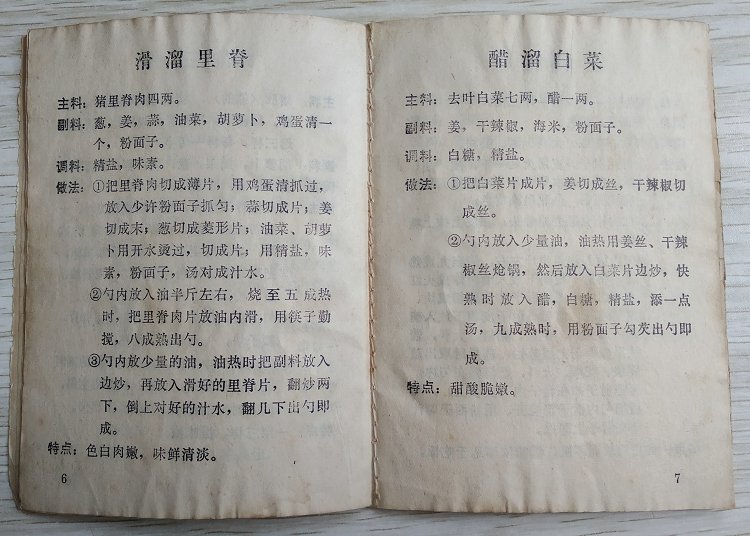 滑溜里脊
主料：猪里脊肉四两。
副料：葱，姜，蒜，油菜，胡萝卜，鸡蛋清一
个，粉面子。
调料：精盐，味素。
做法：①把里脊肉切成薄片，用鸡蛋清抓过，
放入少许粉面子抓匀；蒜切成片；姜
切成末；葱切成菱形片；油菜、胡萝
卜用开水烫过，切成片；用精盐，味
素，粉面子，汤对成汁水。
②勺内放入油半斤左右，烧至五成热
时，把里脊肉片放油内滑，用筷子勤
搅，八成熟出勺。
③勺内放少量的油，油热时把副料放入
边炒，再放入滑好的里脊片，翻炒两
下，倒上对好的汁水，翻几下出勺即
成。
特点：色白肉嫩，味鲜清淡。
6
醋溜白菜
主料：去叶白菜七两，醋一两。
副料：姜，干辣椒，海米，粉面子。
调料：白糖，精盐。
做法：①把白菜片成片，姜切成丝，干辣椒切
成丝。
②勺内放入少量油，油热用姜丝、干辣
椒丝炝锅，然后放入白菜片边炒，快
熟时放入醋，白糖，精盐，添一点
汤，九成熟时，用粉面子勾芡出勺即
成。
特点：甜酸脆嫩。
7